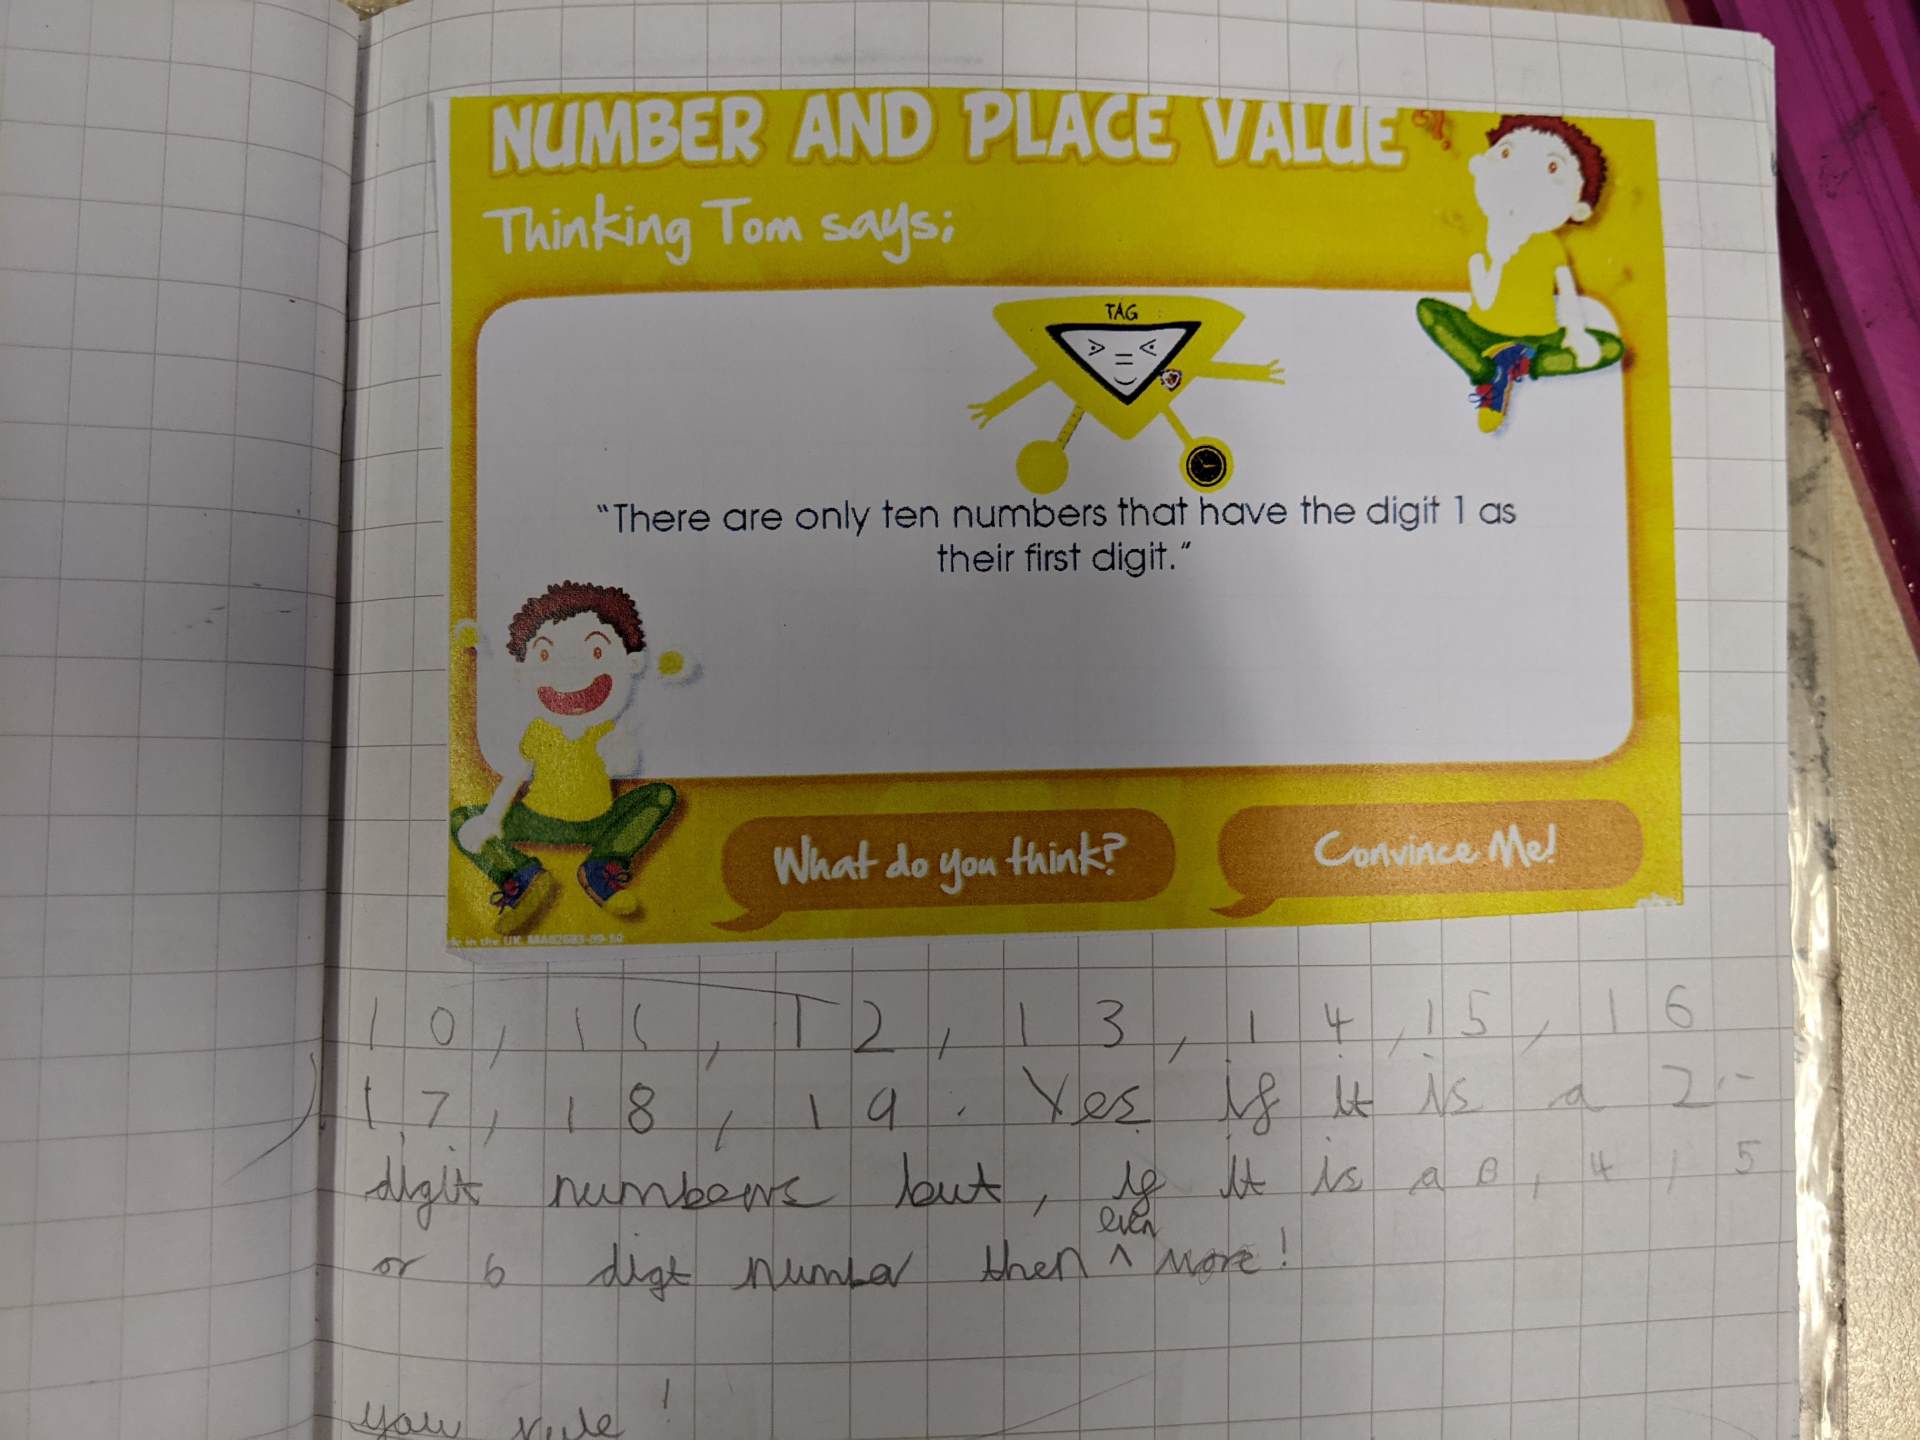 NUMBER AND PLACE VALUE
Thinking Tom says;
TAG
"There are only ten numbers that have the digit 1 as
their first digit."
What do you think?
Convince Me!
in the UK
10, 11, 12, 13, 14, 15, 16
17, 18, 19. Yes if it is a 2-
digit numbers but, if it is a 3, 4, 5
even
or 6 digt number then ^ more!